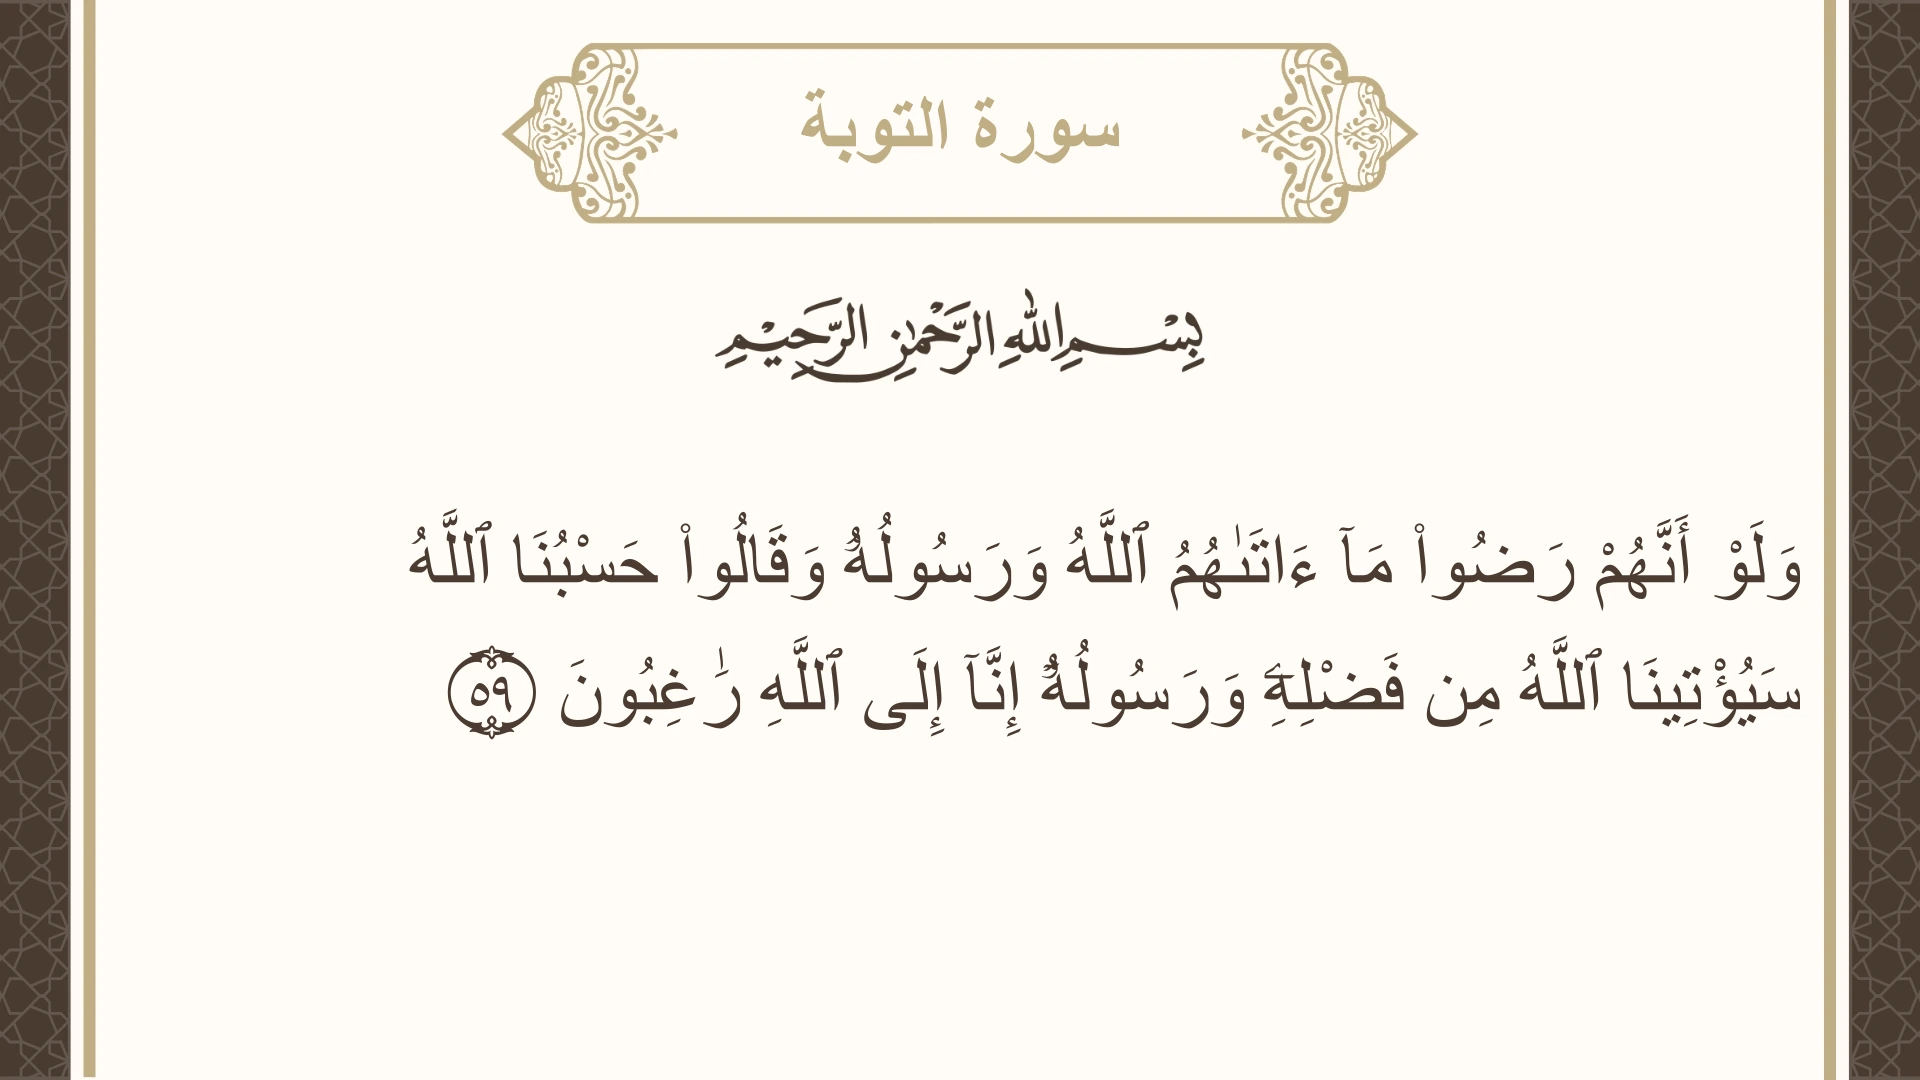 سورة التوبة
بِسْمِ اللهِ الرَّحْمٰنِ الرَّحِيْمِ
وَلَوْ أَنَّهُمْ رَضُوا۟ مَآ ءَاتَىٰهُمُ ٱللَّهُ وَرَسُولُهُۥ وَقَالُوا۟ حَسْبُنَا ٱللَّهُ
سَيُؤْتِينَا ٱللَّهُ مِن فَضْلِهِۦ وَرَسُولُهُۥٓ إِنَّآ إِلَى ٱللَّهِ رَٰغِبُونَ ٥٩